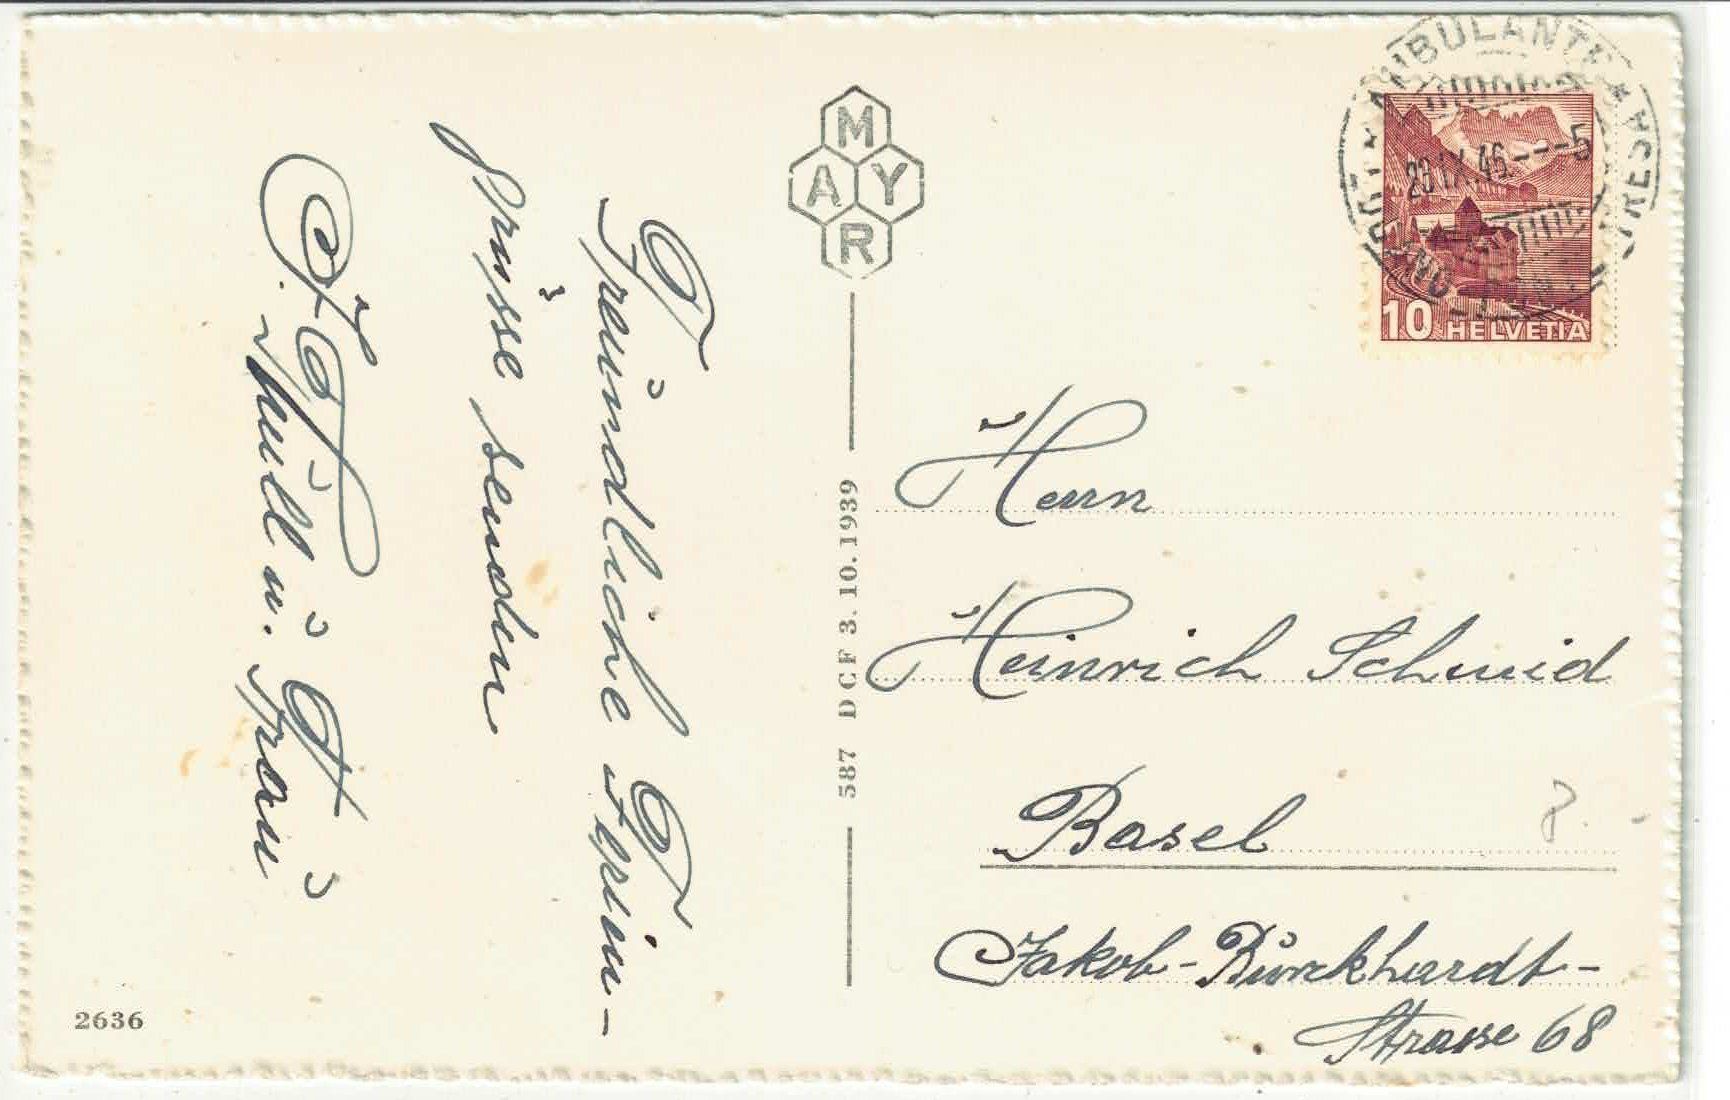 Freundliche Ferien-
grüsse senden
Frau
2636
MAYR
587 DCF 3.10.1939
AMBULANT
23.IX.46.---5
10 HELVETIA
Herrn
Heinrich Schmid
Basel
Jakob-Burckhardt-
Strasse 68
8.